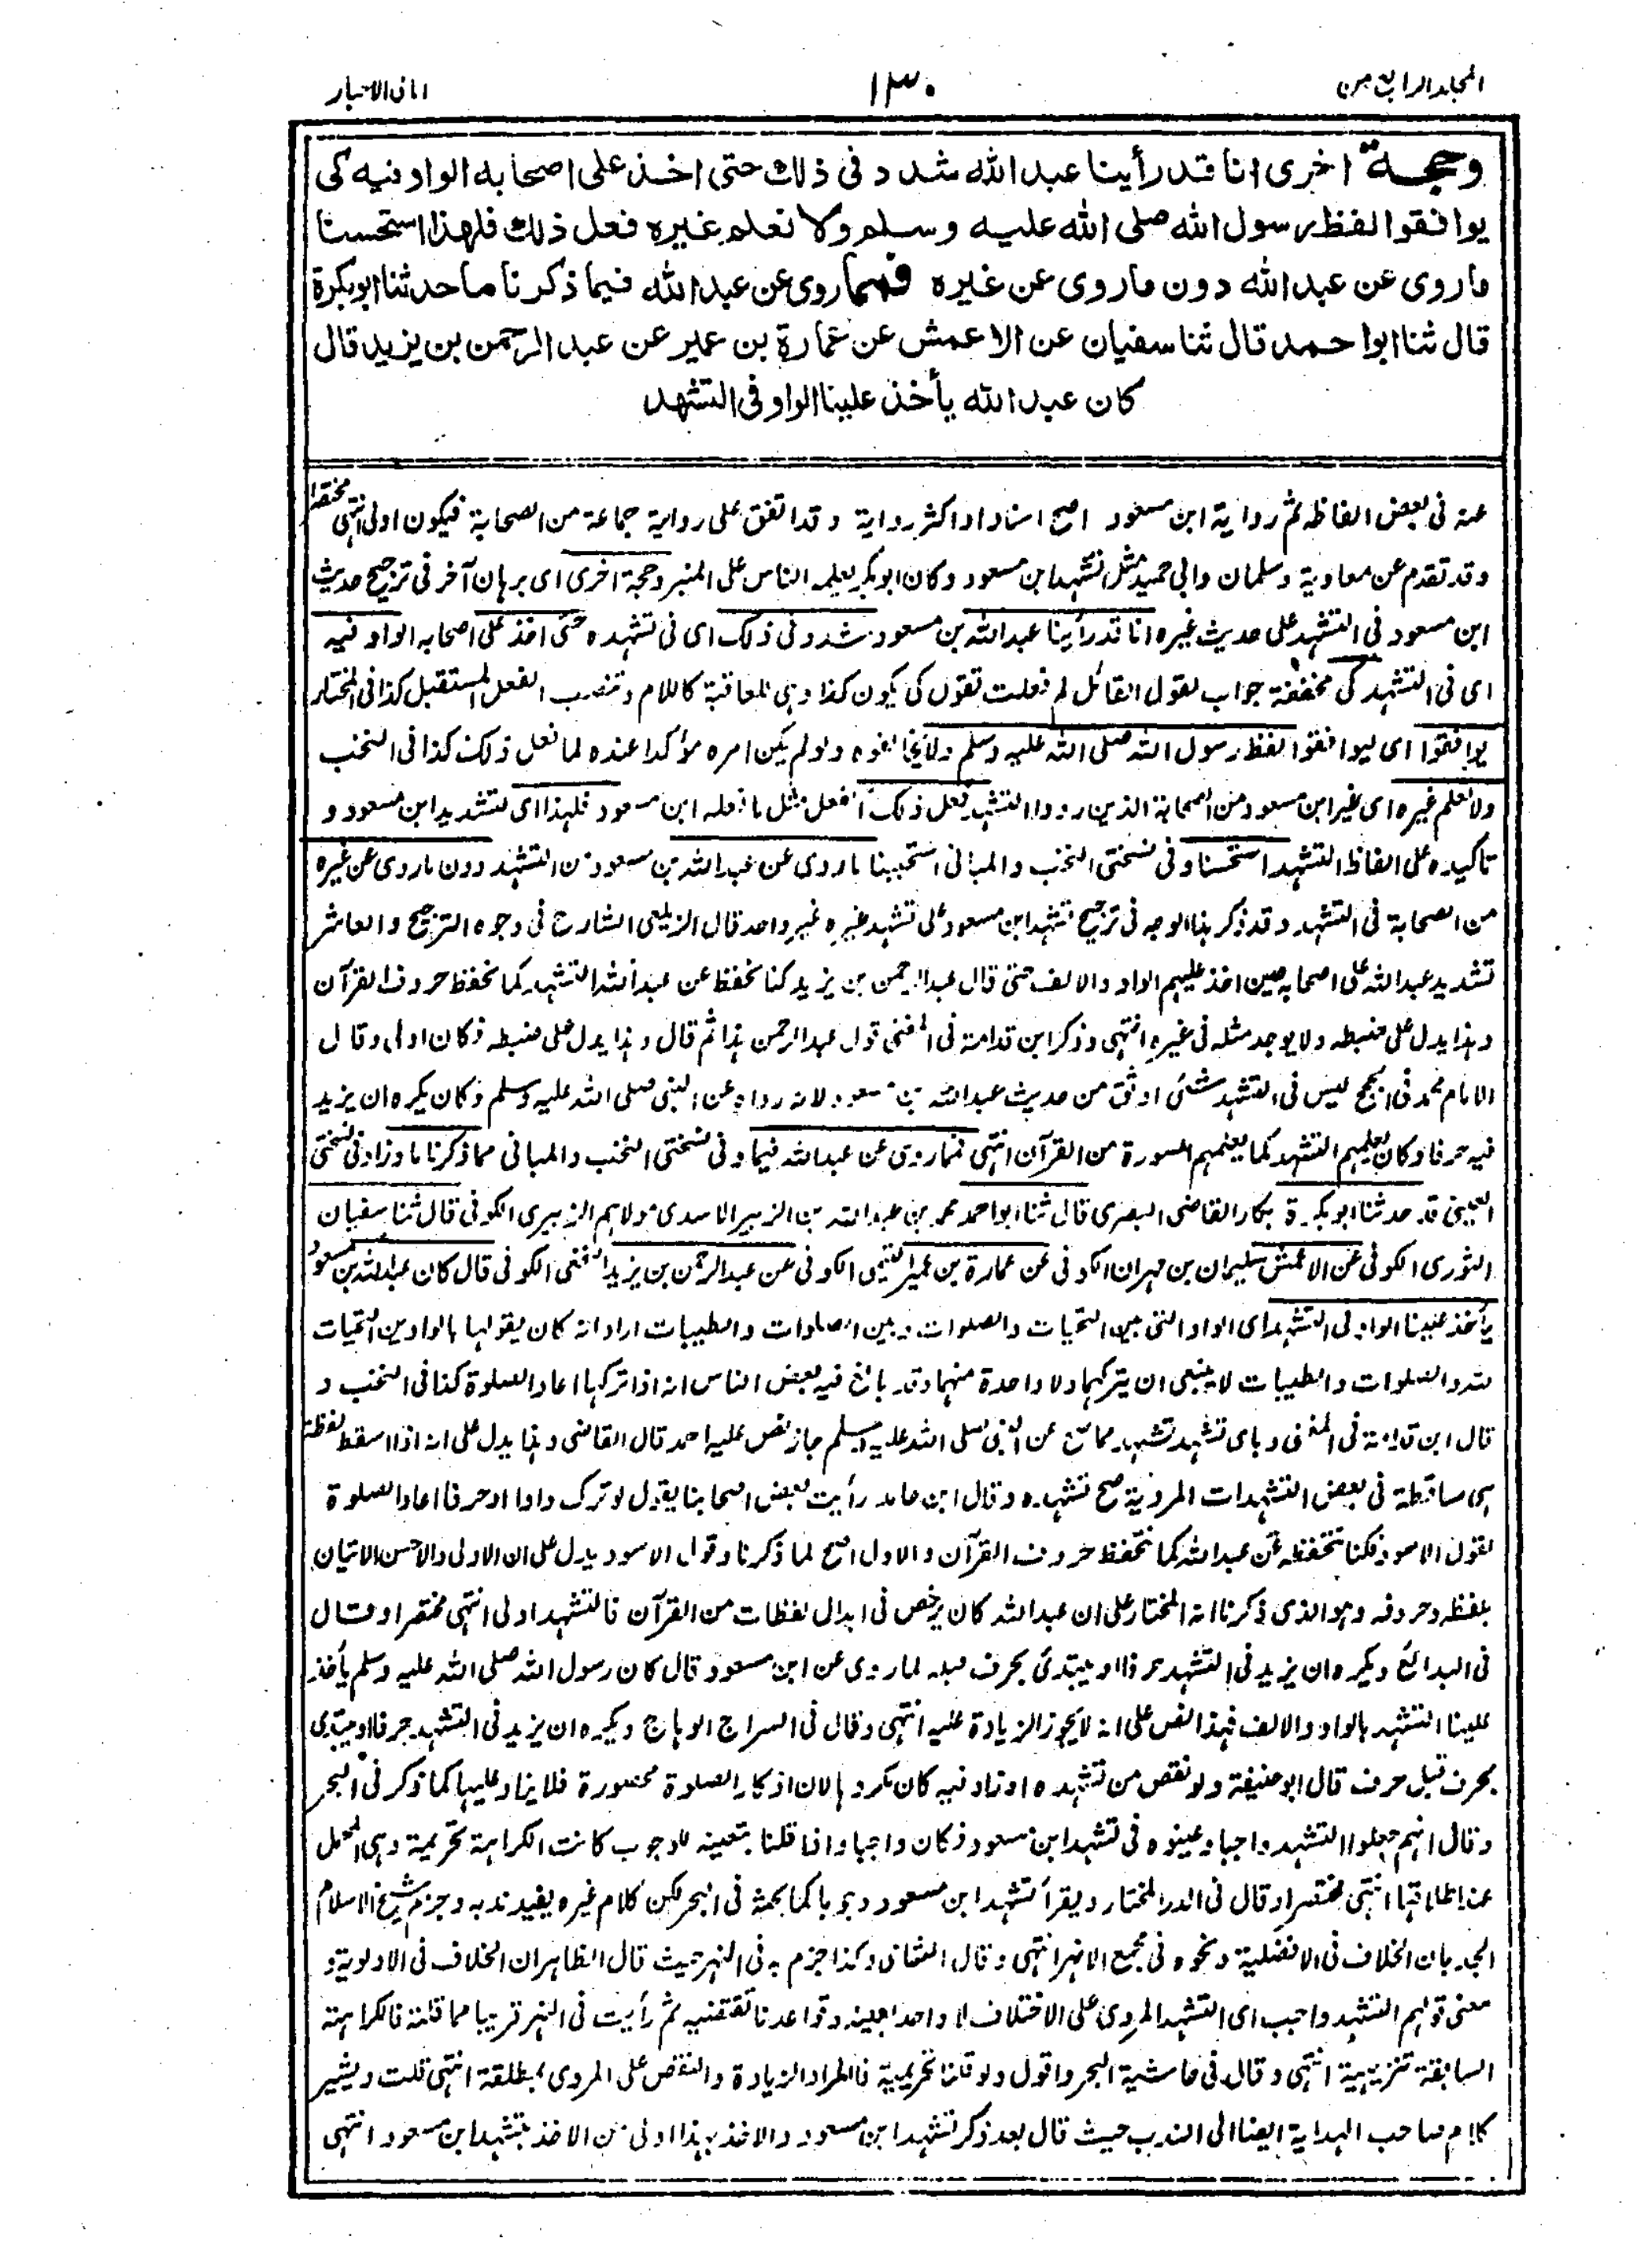 المجلد الرابع من
١٣٠
امانى الاحبار
وحجة اخرى انا قد رأينا عبد الله شدد فى ذلك حتى اخذ على اصحابه الواو فيه كى
يوافقوا لفظ رسول الله صلى الله عليه وسلم ولا نعلم غيره فعل ذلك فلهذا استحسنا
ما روى عن عبد الله دون ما روى عن غيره فمما روى عن عبد الله فيما ذكرنا ما حدثنا ابو بكرة
قال ثنا ابو احمد قال ثنا سفيان عن الاعمش عن عمارة بن عمير عن عبد الرحمن بن يزيد قال
كان عبد الله يأخذ علينا الواو فى التشهد
عنه فى بعض الفاظه ثم رواية ابن مسعود اصح اسنادا واكثر رواية وقد اتفق على رواية جماعة من الصحابة فيكون اولى انتهى مختصرا
وقد تقدم عن معاوية وسلمان وابى حميد مثل تشهد ابن مسعود وكان ابو بكر يعلمه الناس على المنبر وحجة اخرى اى برهان آخر فى ترجيح حديث
ابن مسعود فى التشهد على حديث غيره انا قد رأينا عبد الله بن مسعود شدد فى ذلك اى فى تشهده حتى اخذ على اصحابه الواو فيه
اى فى التشهد كى مخففة جواب لقول القائل لم فعلت تقول كى يكون كذا وهى للعاقبة كاللام وتنصب الفعل المستقبل كذا فى المختار
يوافقوا اى ليوافقوا لفظ رسول الله صلى الله عليه وسلم ولا يخالفوه ولو لم يكن امره مؤكدا عنده لما فعل ذلك كذا فى النخب
ولا نعلم غيره اى غير ابن مسعود من الصحابة الذين رووا التشهد فعل ذلك اى فعل مثل ما فعله ابن مسعود فلهذا اى لتشديد ابن مسعود و
تاكيده على الفاظ التشهد استحسنا وفى نسختى النخب والمبانى استحببنا ما روى عن عبد الله بن مسعود من التشهد دون ما روى عن غيره
من الصحابة فى التشهد وقد ذكر هذا الوجه فى ترجيح تشهد ابن مسعود على تشهد غيره غير واحد قال الزيلعى الشارح فى وجوه الترجيح والعاشر
تشديد عبد الله على اصحابه حين اخذ عليهم الواو والالف حتى قال عبد الرحمن بن يزيد كنا نحفظ عن عبد الله التشهد كما نحفظ حروف القرآن
وهذا يدل على ضبطه ولا يوجد مثله فى غيره انتهى وذكر ابن قدامة فى المغنى قول عبد الرحمن هذا ثم قال وهذا يدل على ضبطه فكان اولى وقال
الامام محمد فى الحجج ليس فى التشهد شئ اوثق من حديث عبد الله بن مسعود لانه رواه عن النبى صلى الله عليه وسلم وكان يكره ان يزيد
فيه حرفا وكان يعلمهم التشهد كما يعلمهم السورة من القرآن انتهى فمما روى عن عبد الله فيما وفى نسختى النخب والمبانى مما ذكرنا ما وزاد فى نسختى
العينى قد حدثنا ابو بكرة بكار القاضى البصرى قال ثنا ابو احمد محمد بن عبد الله بن الزبير الاسدى مولاهم الزبيرى الكوفى قال ثنا سفيان
الثورى الكوفى عن الاعمش سليمان بن مهران الكوفى عن عمارة بن عمير التيمى الكوفى عن عبد الرحمن بن يزيد النخعى الكوفى قال كان عبد الله بن مسعود
يأخذ علينا الواو فى التشهد اى الواو التى بين التحيات والصلوات وبين الصلوات والطيبات اراد انه كان يقولها بالواو بين التحيات
لله والصلوات والطيبات لا ينبغى ان يتركهما ولا واحدة منهما وقد بالغ فيه بعض الناس انه اذا تركها اعاد الصلوة كذا فى النخب و
قال ابن قدامة فى المغنى وباى تشهد تشهد مما صح عن النبى صلى الله عليه وسلم جاز نص عليه احمد قال القاضى وهذا يدل على انه اذا اسقط لفظة
هى ساقطة فى بعض التشهدات المروية صح تشهده وقال ابن حامد رأيت بعض اصحابنا يقول لو ترك واوا او حرفا اعاد الصلوة
لقول الاسود فكنا نتحفظه عن عبد الله كما نتحفظ حروف القرآن والاول اصح لما ذكرنا وقول الاسود يدل على ان الاولى والاحسن الاتيان
بلفظه وحروفه وهو الذى ذكرنا انه المختار على ان عبد الله كان يرخص فى ابدال لفظات من القرآن فالتشهد اولى انتهى مختصرا وقال
فى البدائع ويكره ان يزيد فى التشهد حرفا او يبتدئ بحرف قبله لما روى عن ابن مسعود قال كان رسول الله صلى الله عليه وسلم يأخذ
علينا التشهد بالواو والالف فهذا نص على انه لا يجوز الزيادة عليه انتهى وقال فى السراج الوهاج ويكره ان يزيد فى التشهد حرفا او يبتدى
بحرف قبل حرف قال ابو حنيفة ولو نقص من تشهده او زاد فيه كان مكروها لان اذكار الصلوة محصورة فلا يزاد عليها كما ذكر فى البحر
وقال انهم جعلوا التشهد واجبا وعينوه فى تشهد ابن مسعود فكان واجبا واذا قلنا بتعينه للوجوب كانت الكراهة تحريمية وهى المحمل
عند اطلاقها انتهى مختصرا وقال فى الدر المختار ويقرأ تشهد ابن مسعود وجوبا كما بحثه فى البحر لكن كلام غيره يفيد ندبه وجزم شيخ الاسلام
الجد بان الخلاف فى الافضلية ونحوه فى مجمع الانهر انتهى وقال الشامى وكذا جزم به فى النهر حيث قال الظاهر ان الخلاف فى الاولوية و
معنى قولهم التشهد واجب اى التشهد المروى على الاختلاف لا واحد بعينه وقواعدنا تقتضيه ثم رأيت فى النهر قريبا مما قلته فالكراهة
السابقة تنزيهية انتهى وقال فى حاشية البحر واقول ولو قلنا تحريمية فالمراد الزيادة والنقص على المروى بمطلقه انتهى قلت ويشير
كلام صاحب الهداية ايضا الى الندب حيث قال بعد ذكر تشهد ابن مسعود والاخذ بهذا اولى من الاخذ بتشهد ابن مسعود انتهى